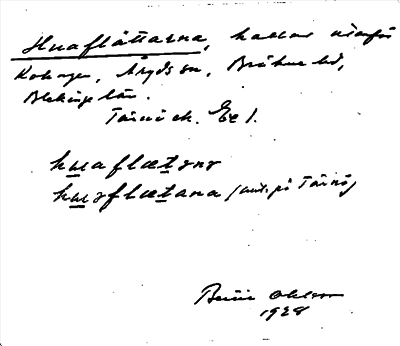 Huaflättarna, kallar utanför
Kohagen, Åryds sn, Bräkne hd,
Blekinge län.
Tärnö ek. Ee 1.
huaflætɘnɘ
huɘflætana (utt. på Tärnö)
Ohlsson
1928